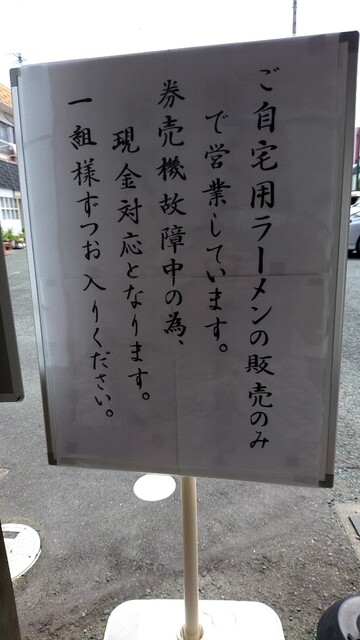 ご自宅用ラーメンの販売のみ
で営業しています。
券売機故障中の為、
現金対応となります。
一組様ずつお入りください。